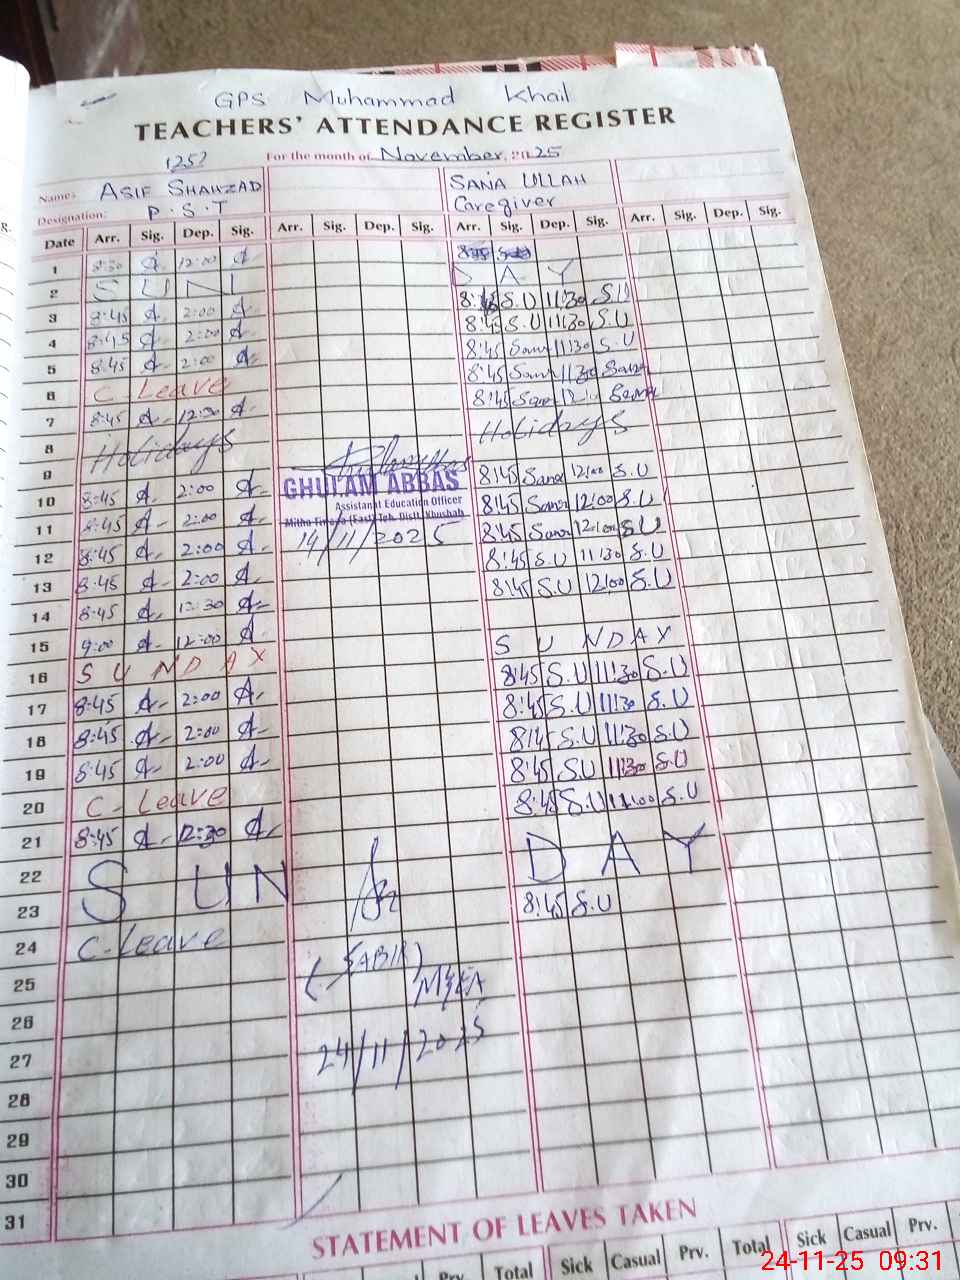 GPS Muhammad Khail
TEACHERS' ATTENDANCE REGISTER
1252 For the month of November, 2025
Name: ASIF SHAHZAD SANA ULLAH
Designation: P.S.T Caregiver
Date Arr. Sig. Dep. Sig. Arr. Sig. Dep. Sig. Arr. Sig. Dep. Sig. Arr. Sig. Dep. Sig.
1 8:30 12:00
2 S U N D A Y
3 8:45 2:00 S.U 11:30 S.U
4 8:45 2:00 8:45 S.U 11:30 S.U
5 8:45 2:00 8:45 Sana 11:30 S.U
6 C. Leave 8:45 Sana 11:30 Sana
7 8:45 12:30 8:45 Sana Sana
8 Holidays Holidays
9
10 8:45 2:00 8:45 Sana 12:00 S.U
GHULAM ABBAS
Assistant Education Officer
Mitha Tiwana (East) Teh. Distt. Khushab
14/11/2025
11 8:45 2:00 8:45 Sana 12:00 S.U
12 8:45 2:00 8:45 Sana 12:00 S.U
13 8:45 2:00 8:45 S.U 11:30 S.U
14 8:45 12:30 8:45 S.U 12:00 S.U
15 9:00 12:00
16 S U N D A Y S U N D A Y
17 8:45 2:00 8:45 S.U 11:30 S.U
18 8:45 2:00 8:45 S.U 11:30 S.U
19 8:45 2:00 8:45 S.U 11:30 S.U
20 C. Leave 8:45 S.U 11:30 S.U
21 8:45 12:30 8:45 S.U 11:00 S.U
22
23 S U N D A Y
24 C. Leave 8:45 S.U
25 (SABIR)
26 MEA
27 24/11/2025
28
29
30
31
STATEMENT OF LEAVES TAKEN
Prv. Total Sick Casual Prv. Total Sick Casual Prv.
24-11-25 09:31